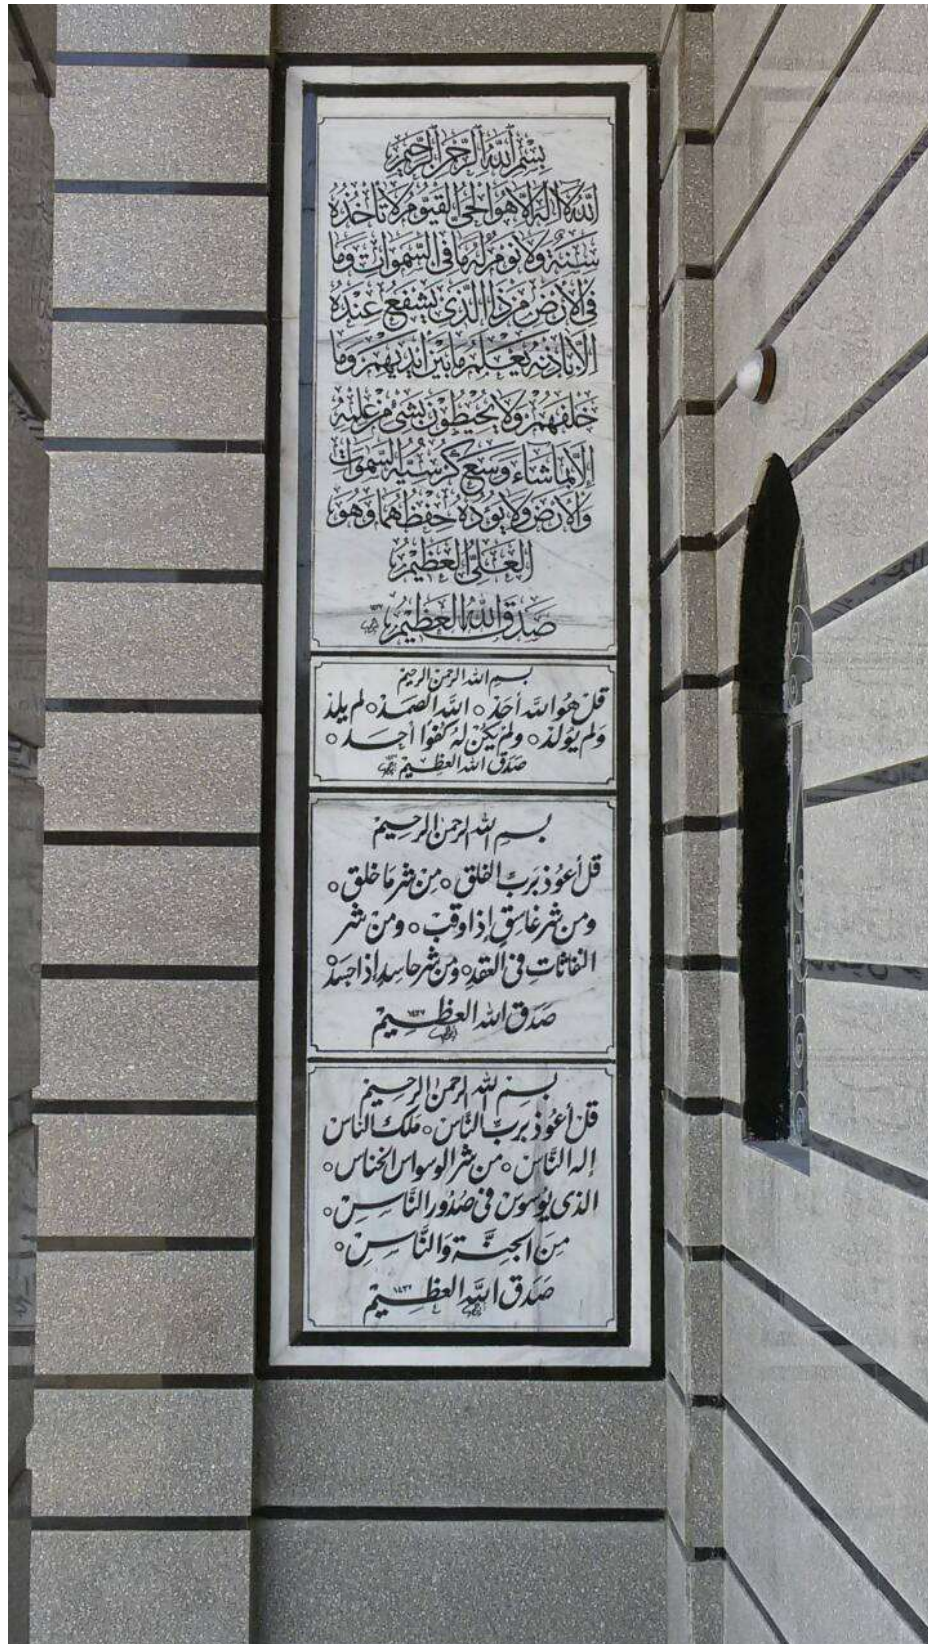 بِسْمِ اللَّهِ الرَّحْمَنِ الرَّحِيمِ
اللَّهُ لَا إِلَهَ إِلَّا هُوَ الْحَيُّ الْقَيُّومُ لَا تَأْخُذُهُ
سِنَةٌ وَلَا نَوْمٌ لَهُ مَا فِي السَّمَوَاتِ وَمَا
فِي الْأَرْضِ مَنْ ذَا الَّذِي يَشْفَعُ عِنْدَهُ
إِلَّا بِإِذْنِهِ يَعْلَمُ مَا بَيْنَ أَيْدِيهِمْ وَمَا
خَلْفَهُمْ وَلَا يُحِيطُونَ بِشَيْءٍ مِنْ عِلْمِهِ
إِلَّا بِمَا شَاءَ وَسِعَ كُرْسِيُّهُ السَّمَوَاتِ
وَالْأَرْضَ وَلَا يَؤُدُهُ حِفْظُهُمَا وَهُوَ
الْعَلِيُّ الْعَظِيمُ
صَدَقَ اللَّهُ الْعَظِيمُ
بسم الله الرحمن الرحيم
قل هو الله أحد ۝ الله الصمد ۝ لم يلد
ولم يولد ۝ ولم يكن له كفوا أحد ۝
صدق الله العظيم
بسم الله الرحمن الرحيم
قل أعوذ برب الفلق ۝ من شر ما خلق ۝
ومن شر غاسق إذا وقب ۝ ومن شر
النفاثات في العقد ۝ ومن شر حاسد إذا حسد
صدق الله العظيم ١٤٣٧
بسم الله الرحمن الرحيم
قل أعوذ برب الناس ۝ ملك الناس
إله الناس ۝ من شر الوسواس الخناس ۝
الذي يوسوس في صدور الناس ۝
من الجنة والناس ۝
صدق الله العظيم ١٤٣٧